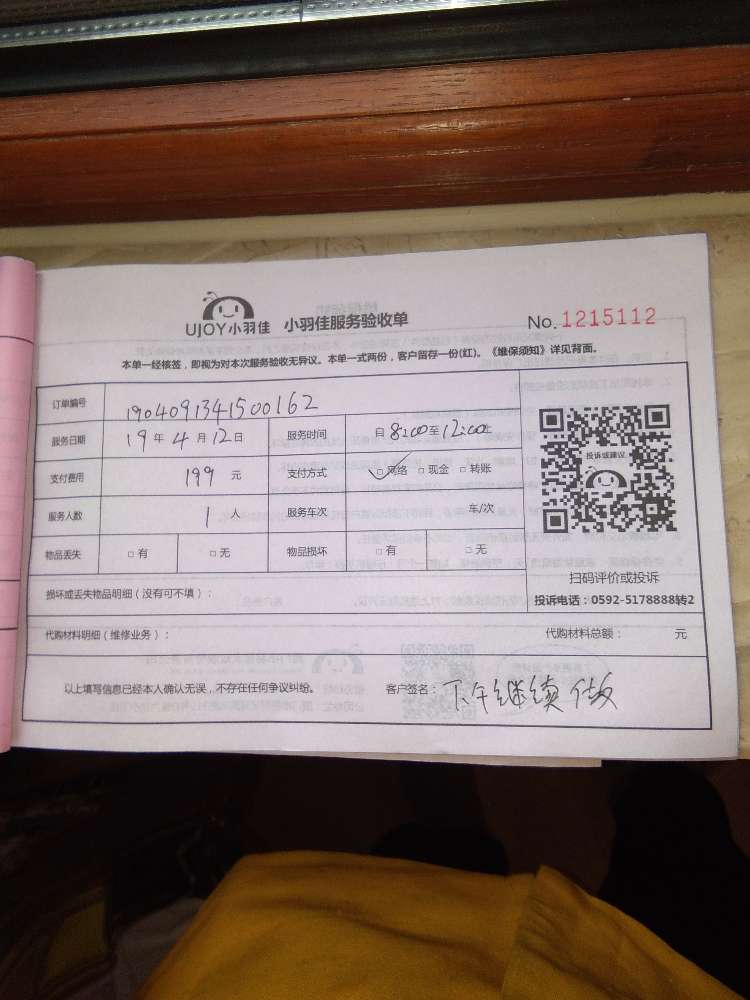 UJOY小羽佳 小羽佳服务验收单 No. 1215112
本单一经核签，即视为对本次服务验收无异议。本单一式两份，客户留存一份(红)。《维保须知》详见背面。
订单编号 190409134150162
服务日期 19年4月12日 服务时间 自8:00至12:00止
支付费用 199元 支付方式 □网络 □现金 □转账
投诉或建议
服务人数 1人 服务车次 车/次
物品丢失 □有 □无 物品损坏 □有 □无
扫码评价或投诉
损坏或丢失物品明细（没有可不填）：
投诉电话：0592-5178888转2
代购材料明细（维修业务）： 代购材料总额： 元
以上填写信息已经本人确认无误，不存在任何争议纠纷。 客户签名：下午继续做